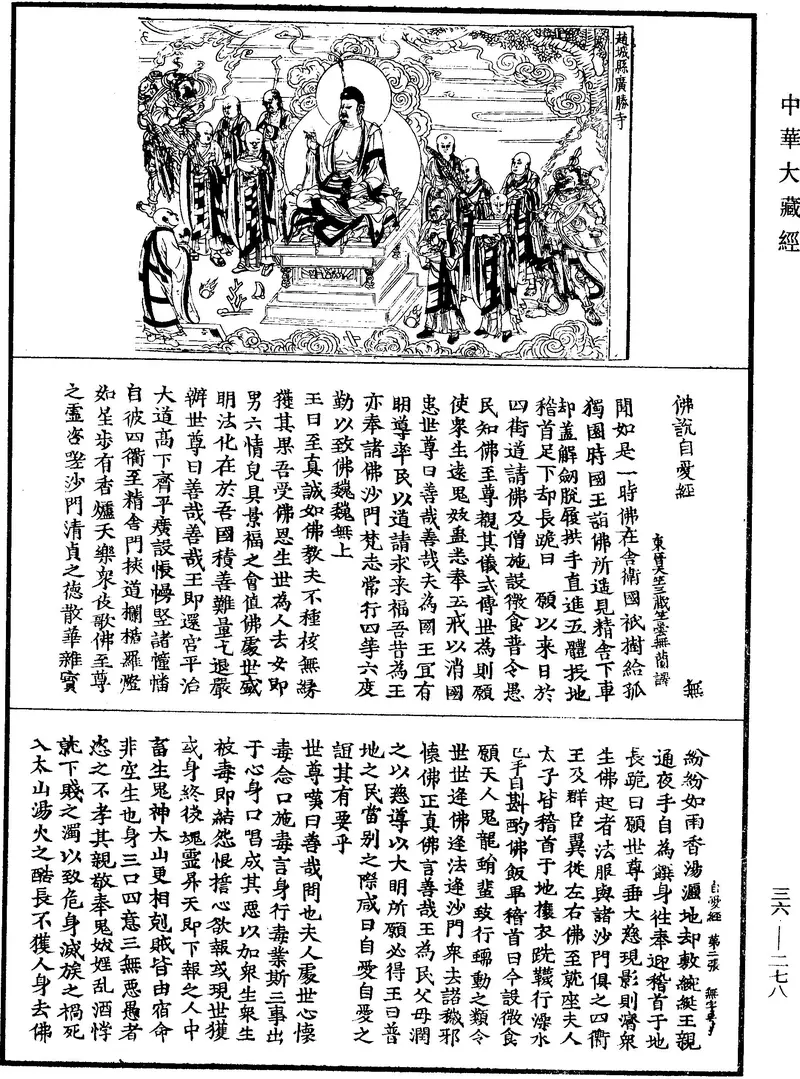 中華大藏經
趙城縣廣勝寺
佛說自愛經　無
東晉天竺三藏竺曇無蘭譯
聞如是一時佛在舍衛國祇樹給孤
獨園時國王詣佛所遥見精舍下車
却蓋解劒脫履拱手直進五體投地
稽首足下却長跪曰　願以來日於
四街道請佛及僧施設微食普令愚
民知佛至尊觀其儀式傳世為則願
使衆生遠鬼妖蠱悉奉五戒以消國
患世尊曰善哉善哉夫為國王冝有
明導率民以道請求来福吾昔為王
亦奉諸佛沙門梵志常行四等六度
勤以致佛巍巍無上
王曰至真誠如佛教夫不種核無緣
獲其果吾受佛恩生世為人去女即
男六情皃具景福之會值佛處世盛
明法化在於吾國積善難量乞退嚴
辦世尊曰善哉善哉王即還宮平治
大道高下齊平廣設悵幔竪諸幢幡
自彼四衢至精舍門挾道欄楯羅燈
如星步有香爐天樂衆伎歌佛至尊
之靈咨嗟沙門清貞之德散華雜寶
自愛經　第二張　無字号
紛紛如雨香湯灑地却敷綩綖王親
通夜手自為饌身往奉迎稽首于地
長跪曰願世尊垂大慈現影則濟衆
生佛起著法服與諸沙門俱之四衢
王及群臣翼從左右佛至就座夫人
太子皆稽首于地攘衣跣韈行澡水
已手自斟酌佛飯畢稽首曰今設微食
願天人鬼龍蜎蜚蚑行蠕動之類令
世世逢佛逢法逢沙門衆去諂穢邪
懷佛正真佛言善哉王為民父母潤
之以慈導以大明所願必得王曰普
地之民當別之際咸曰自愛自愛之
誼其有要乎
世尊嘆曰善哉問也夫人處世心懷
毒念口施毒言身行毒業斯三事出
于心身口唱成其惡以加衆生衆生
被毒即結怨恨誓心欲報或現世獲
或身終後魂靈昇天即下報之人中
畜生鬼神太山更相剋賊皆由宿命
非空生也身三口四意三無惡愚者
恣之不孝其親敬奉鬼妖婬亂酒悖
就下賤之濁以致危身滅族之禍死
入太山湯火之酷長不獲人身去佛
三六—二七八